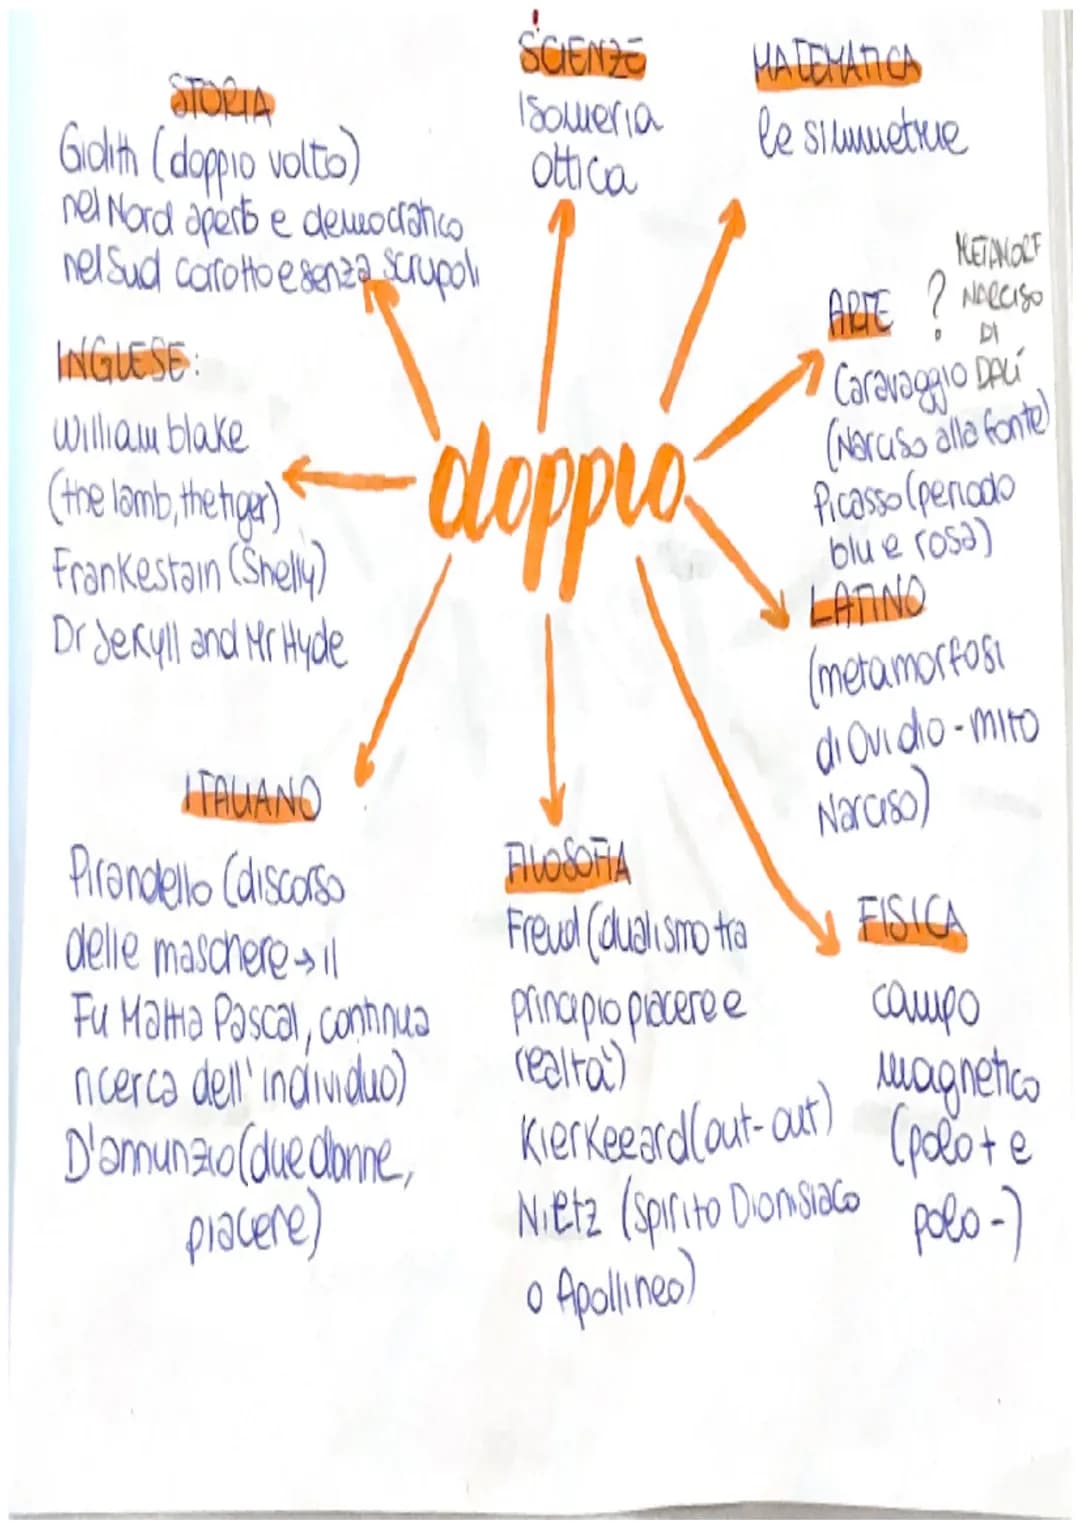 SCIENZE
Isomeria
ottica
MATEMATICA
le simmetrie
STORIA
Giolitti (doppio volto)
nel Nord aperto e democratico
nel Sud corrotto e senza scrupoli
INGLESE:
William blake
(the lamb, the tiger)
Frankestain (Shelly)
Dr Jekyll and Mr Hyde
doppio
ARTE ?
METAMORF
NARCISO
DI
DALÍ
Caravaggio
(Narciso alla fonte)
Picasso (periodo
blu e rosa)
LATINO
(metamorfosi
di Ovidio - mito
Narciso)
ITALIANO
Pirandello (discorso
delle maschere → il
Fu Mattia Pascal, continua
ricerca dell' individuo)
D'annunzio (due donne,
piacere)
FILOSOFIA
Freud (dualismo tra
principio piacere e
realtà)
Kierkeeard (out-out)
Nietz (spirito Dionisiaco
o Apollineo)
FISICA
campo
magnetico
(polo + e
polo -)